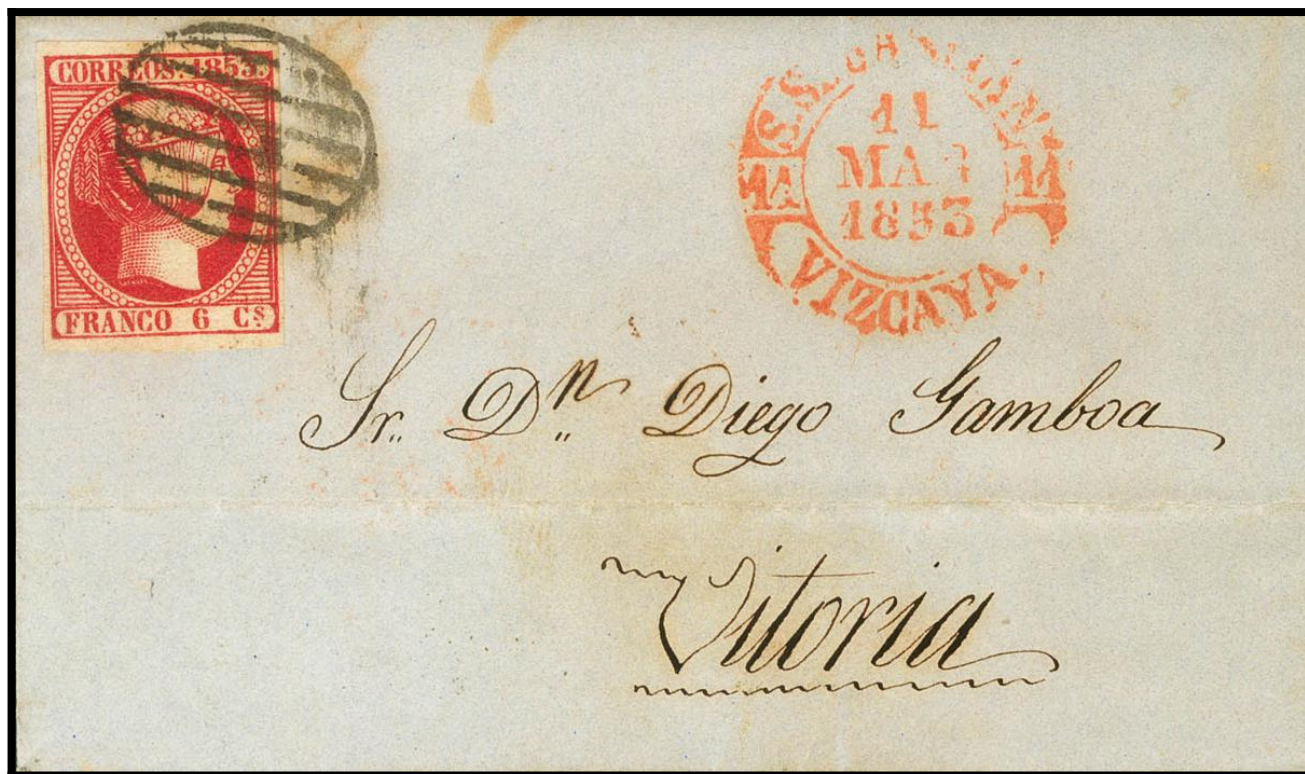 CORREOS. 1853.
FRANCO 6 Cs
11
MAR
1853
11
11
VIZCAYA.
Sr. Dn Diego Gamboa
Vitoria